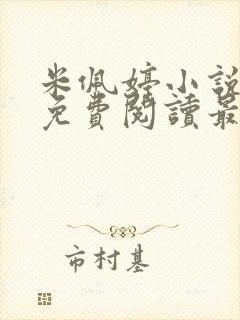 米佩婷小說
免費閱讀最
市村基